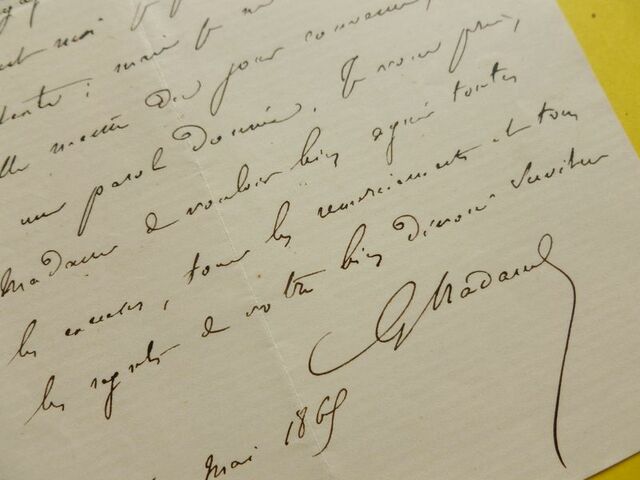 moi
mais je
du jour convenu,
une parole donnée. Je vous prie,
Madame de vouloir bien agréer toutes
les excuses, tous les remerciements et tous
les regrets de votre bien dévoué Serviteur
Mai 1865